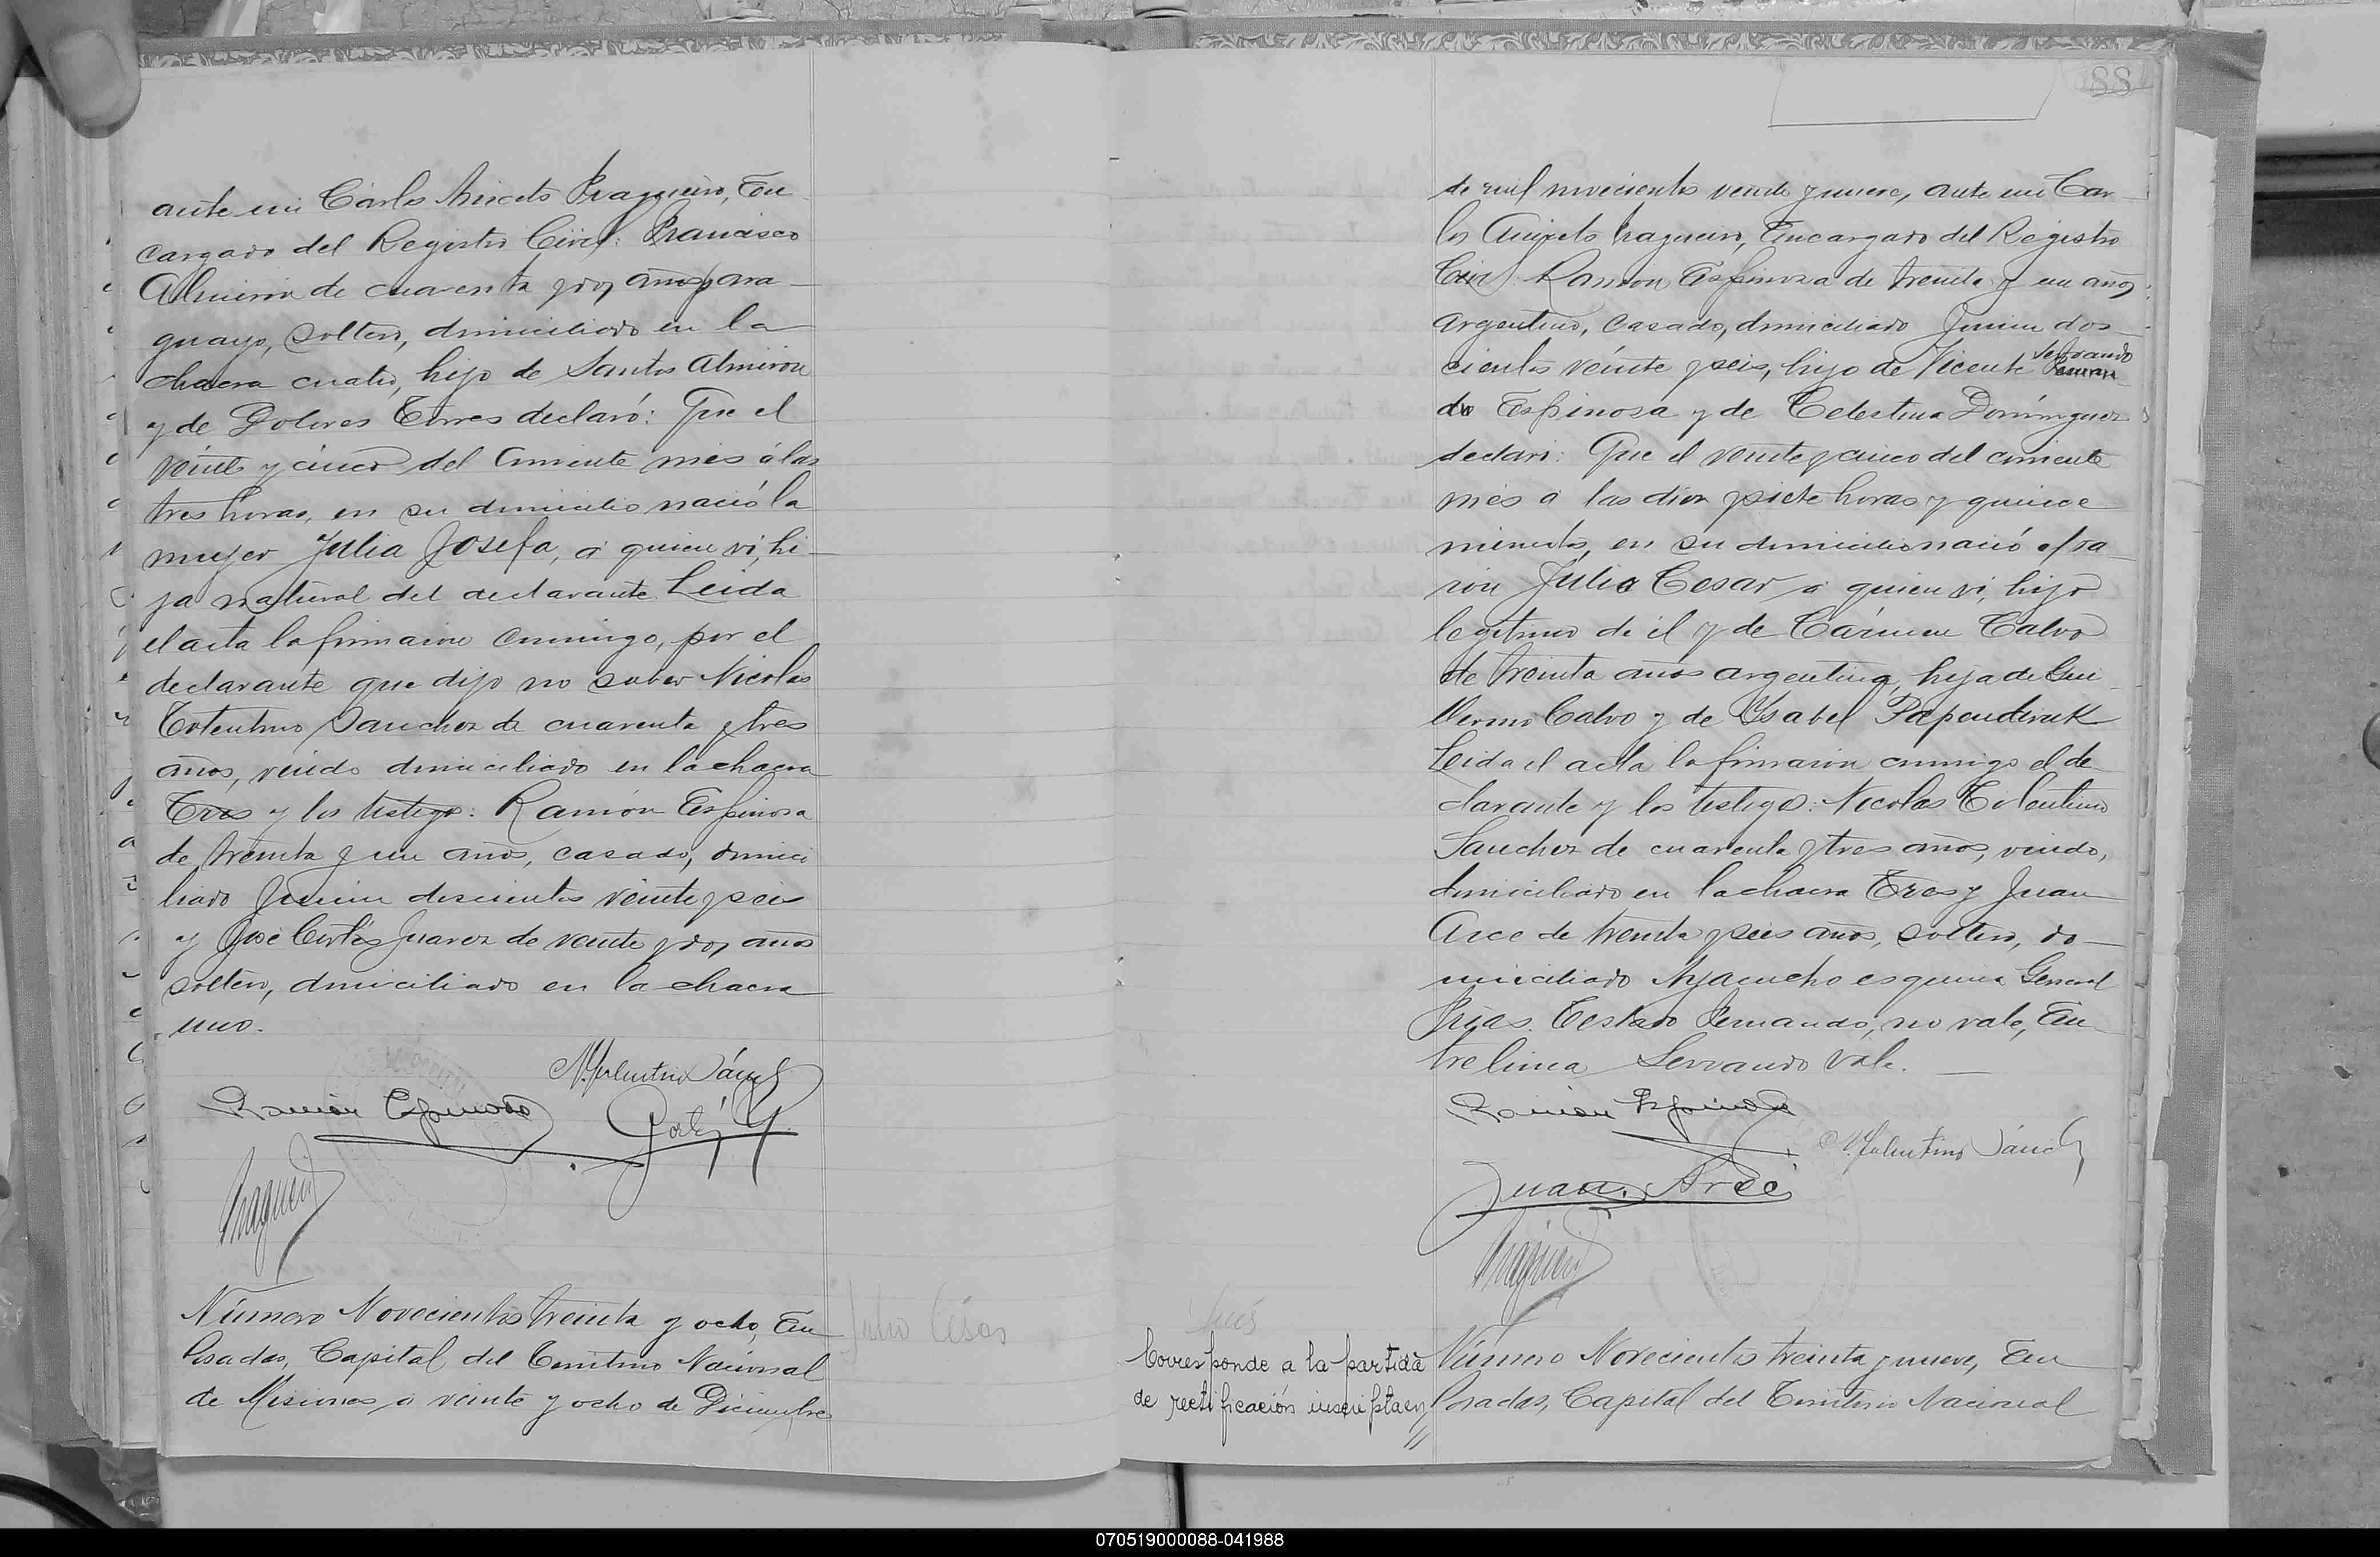 ante mi Cárlos Aniceto Fragueiro, En
cargado del Registro Civil: Francisco
Almirón de cuarenta y dos años, para
guayo, soltero, domiciliado en la
chacra cuatro, hijo de Santos Almirón
y de Dolores Torres declaró: Que el
veinte y cinco del corriente mes á las
tres horas, en su domicilio nació la
mujer Julia Josefa, á quien vi, hi
ja natural del declarante. Leida
el acta la firmaron conmigo, por el
declarante que dijo no saber Nicolas
Tolentino Sanchez de cuarenta y tres
años, viudo domiciliado en la chacra
Tres y los testigos: Ramón Espinosa
de treinta y un años, casado, domici
liado Junin doscientos veinte y seis
y José Cortés Juarez de veinte y dos años
soltero, domiciliado en la chacra
uno.
N. Tolentino Sánch
Ramón Espinosa
Número Novecientos treinta y ocho, En
Posadas, Capital del Territorio Nacional
de Misiones á veinte y ocho de Diciembre
Julio César
88
de mil novecientos veinte y nueve, ante mi Car
los Aniceto Fragueiro, Encargado del Registro
Civil: Ramón Espinosa de treinta y un años,
argentino, casado, domiciliado Junin dos
cientos veinte y seis, hijo de Vicente Servando
do Espinosa y de Celestina Domínguez
declaró: Que el veinte y cinco del corriente
mes á las diez y siete horas y quince
minutos, en su domicilio nació el va
rón Julio Cesar á quien vi, hijo
legitimo de él y de Cármen Calvo
de treinta años argentina, hija de Gui
llermo Calvo y de Ysabel Papendieck
Leida el acta la firmaron conmigo el de
clarante y los testigos: Nicolas Tolentino
Sanchez de cuarenta y tres años, viudo,
domiciliado en la chacra Tres y Juan
Arce de treinta y seis años, soltero, do
miciliado Ayacucho esquina General
Frias. Testado Fernando, no vale, En
trelinea Servando vale.
Ramón Espinosa
N. Tolentino Sánch
Juan Arce
Corresponde a la partida
de rectificación inscripta en
Número Novecientos treinta y nueve, En
Posadas, Capital del Territorio Nacional
070519000088-041988